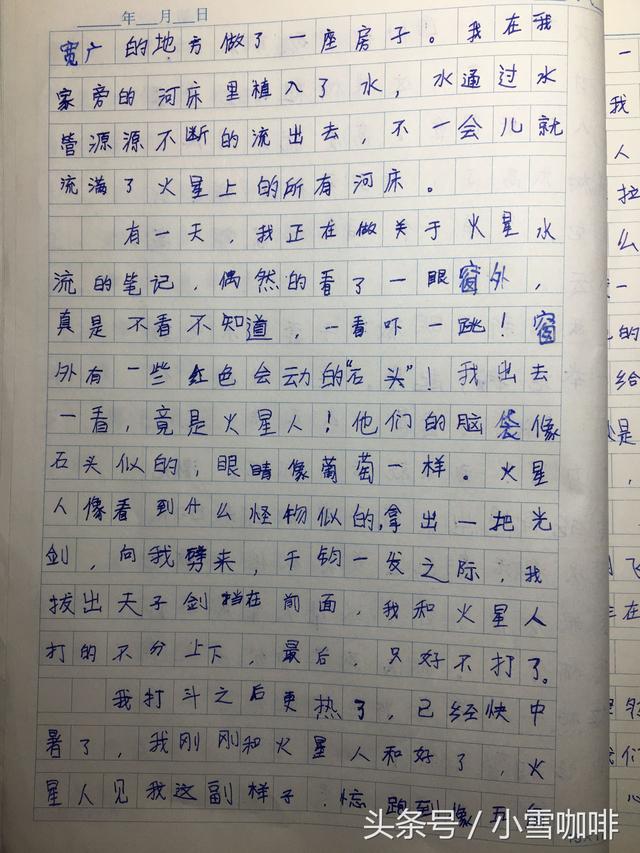 年 月 日
宽广的地方做了一座房子。我在我
家旁的河床里植入了水，水通过水
管源源不断的流出去，不一会儿就
流满了火星上的所有河床。
有一天，我正在做关于火星水
流的笔记，偶然的看了一眼窗外，
真是不看不知道，一看吓一跳！窗
外有一些红色会动的“石头”！我出去
一看，竟是火星人！他们的脑袋像
石头似的，眼睛像葡萄一样。火星
人像看到什么怪物似的，拿出一把光
剑，向我劈来，千钧一发之际，我
拔出天子剑挡在前面，我和火星人
打的不分上下，最后，只好不打了。
我打斗之后更热了，已经快中
暑了，我刚刚和火星人和好了，火
星人见我这副样子，忙跑到像
头条号／小雪咖啡
一
我
人
拉
么
一
的
给
是
飞
在
们
心